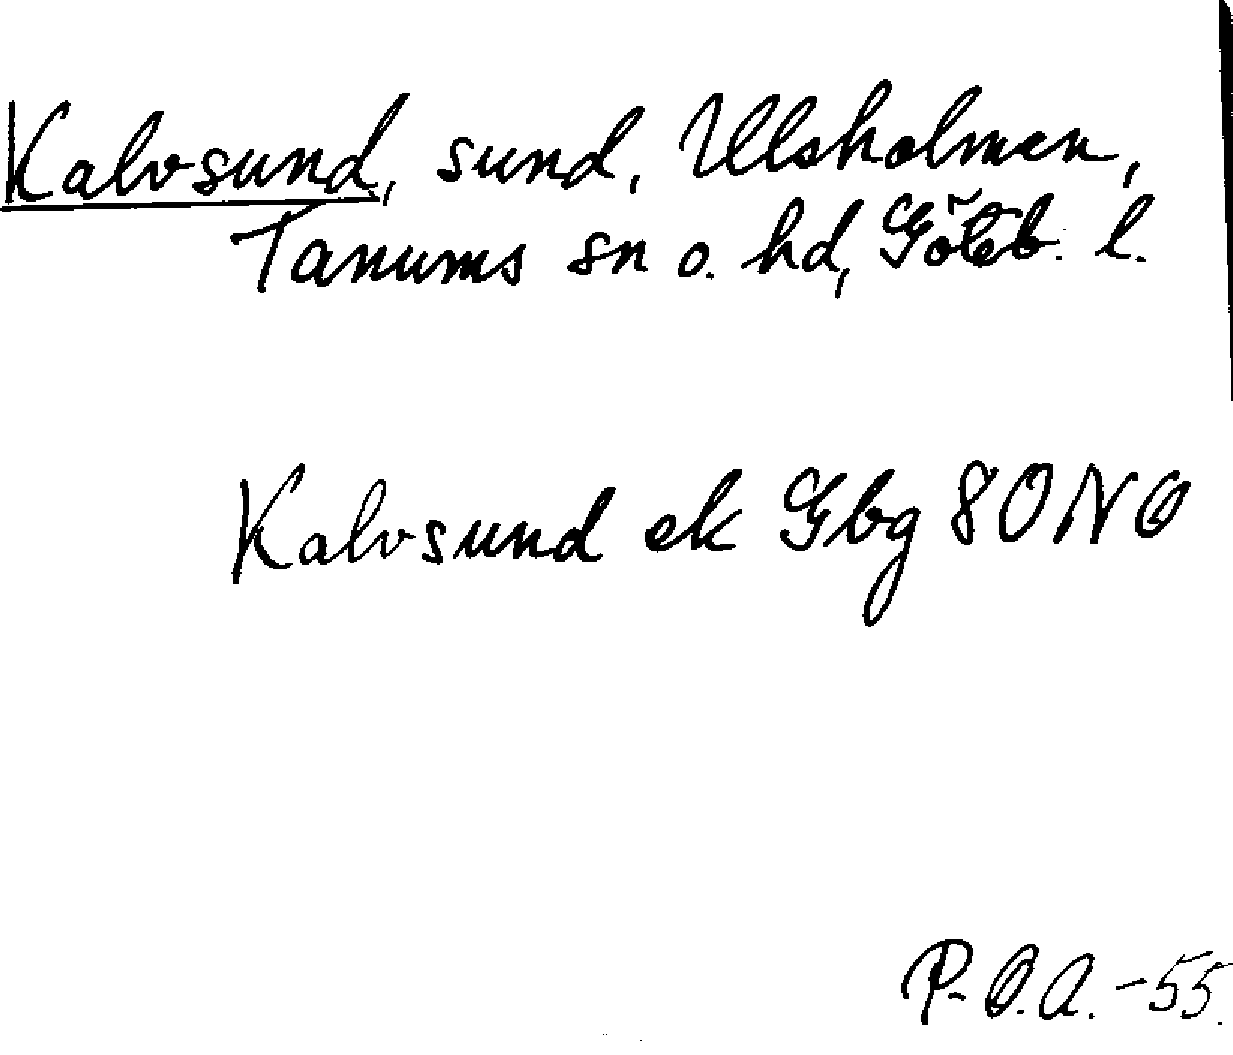 Kalvsund, sund, Ulsholmen,
Tanums sn o. hd, Göteb. l.
Kalvsund ek Gbg 80 NO
P-O.A. -55.